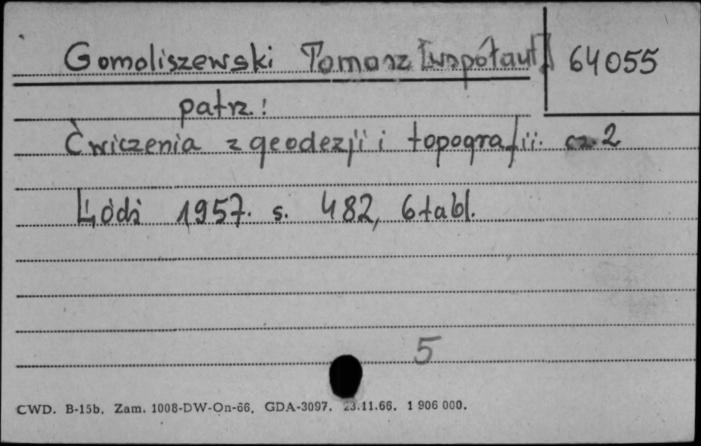 Gomoliszewski Tomasz [współaut] 64055
patrz:
Ćwiczenia z geodezji i topografii. cz. 2
Łódź 1957. s. 482, 6 tabl.
5
CWD. B-15b. Zam. 1008-DW-On-66. GDA-3097. 23.11.66. 1 906 000.